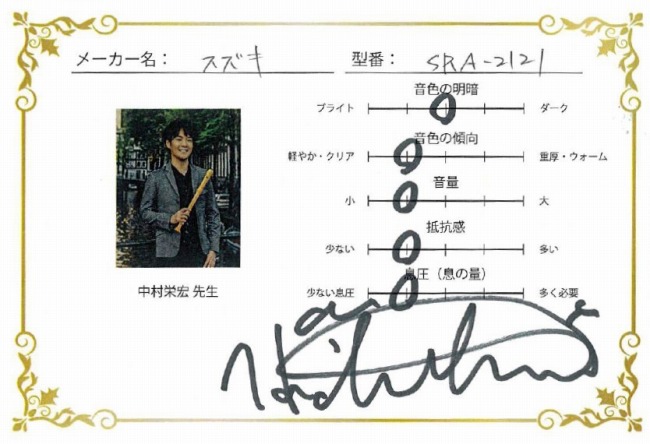 メーカー名： スズキ 型番： SRA-2121
音色の明暗
ブライト ダーク
音色の傾向
軽やか・クリア 重厚・ウォーム
音量
小 大
抵抗感
少ない 多い
息圧（息の量）
少ない息圧 多く必要
中村栄宏 先生